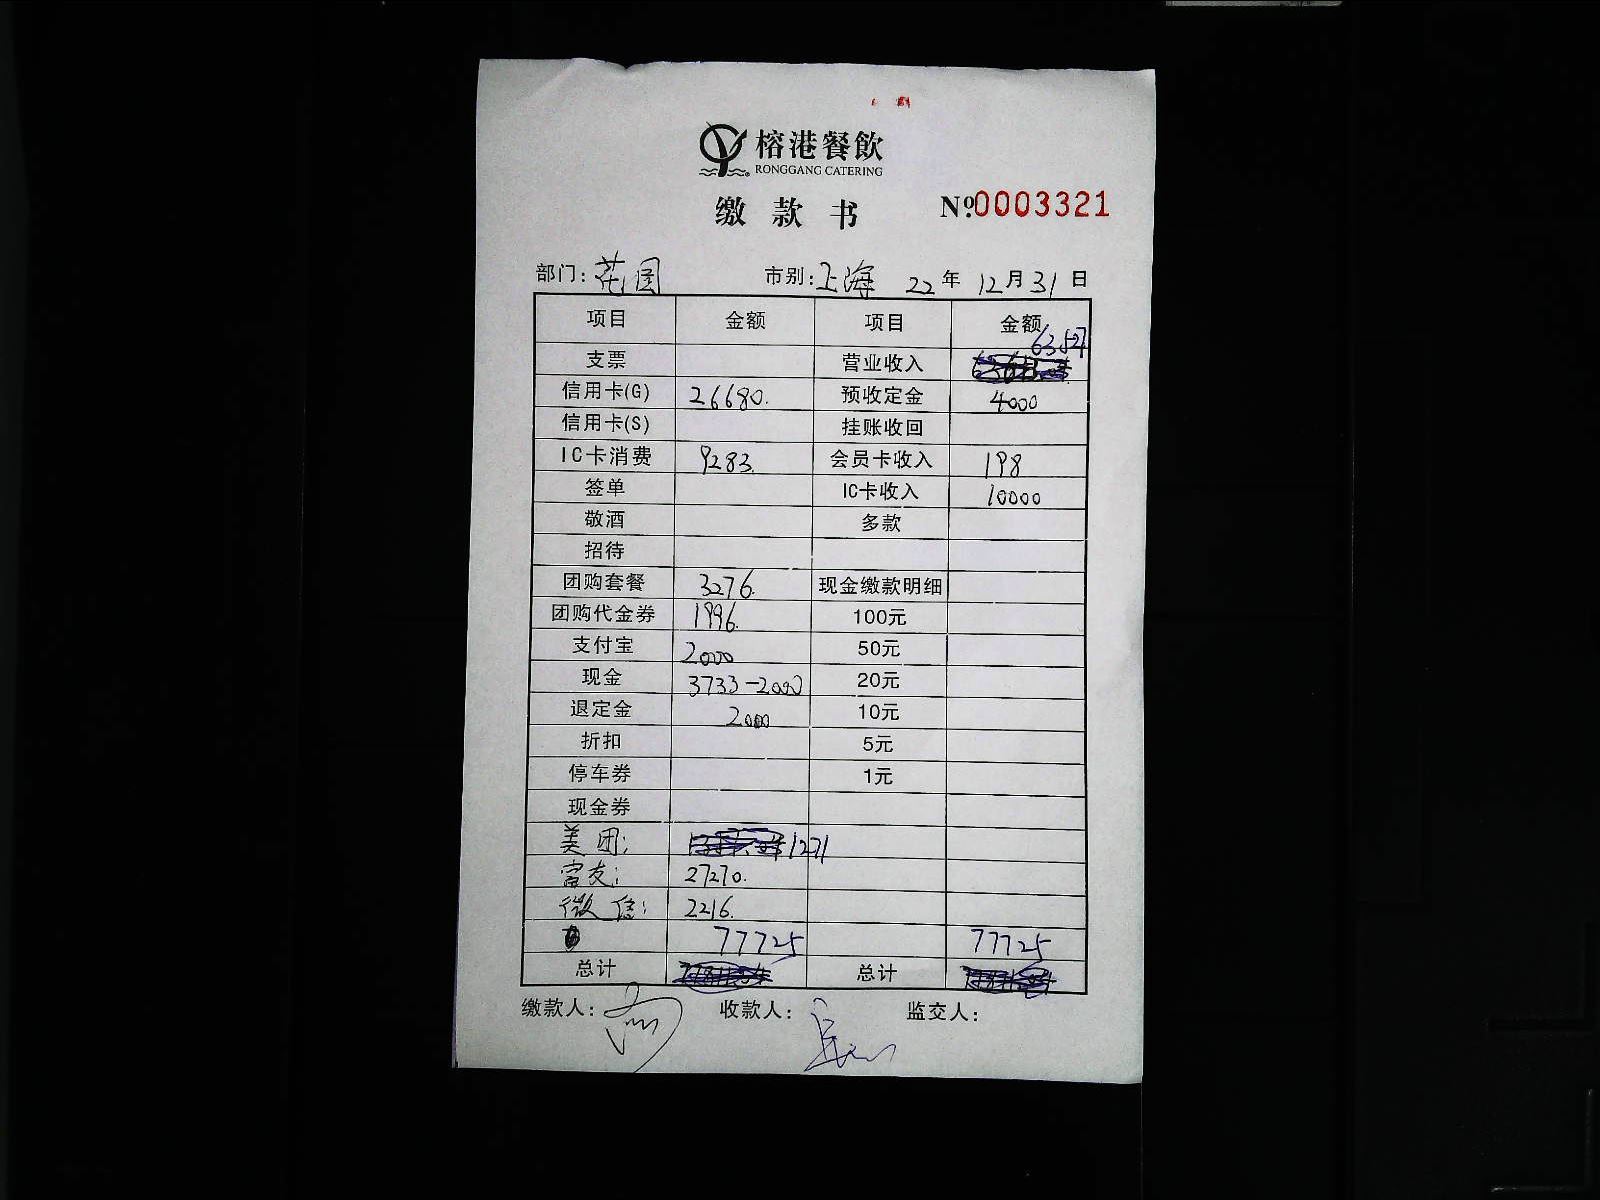 榕港餐飲
RONGGANG CATERING
缴款书 Nº:0003321
部门: 花园 市别: 上海 22年 12月 31日
项目 金额 项目 金额
支票 营业收入 63527
信用卡(G) 26680. 预收定金 4000
信用卡(S) 挂账收回
IC卡消费 9283. 会员卡收入 198
签单 IC卡收入 10000
敬酒 多款
招待
团购套餐 3276. 现金缴款明细
团购代金券 1996. 100元
支付宝 2000 50元
现金 3733-2000 20元
退定金 2000 10元
折扣 5元
停车券 1元
现金券
美团: 1271
富友: 27270.
微信: 2216.
77725 77725
总计 总计
缴款人: 收款人: 监交人: